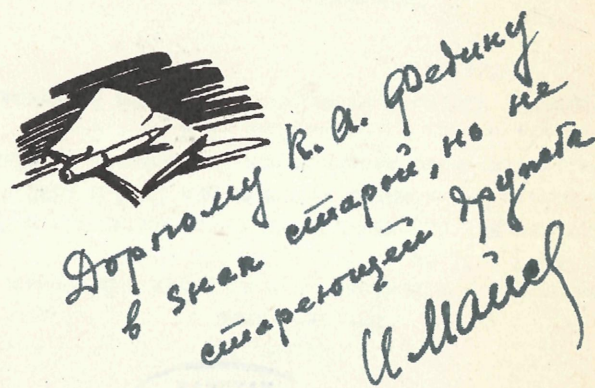 Дорогому К. А. Федину
в знак старой, но не
стареющей дружбы
И Майс